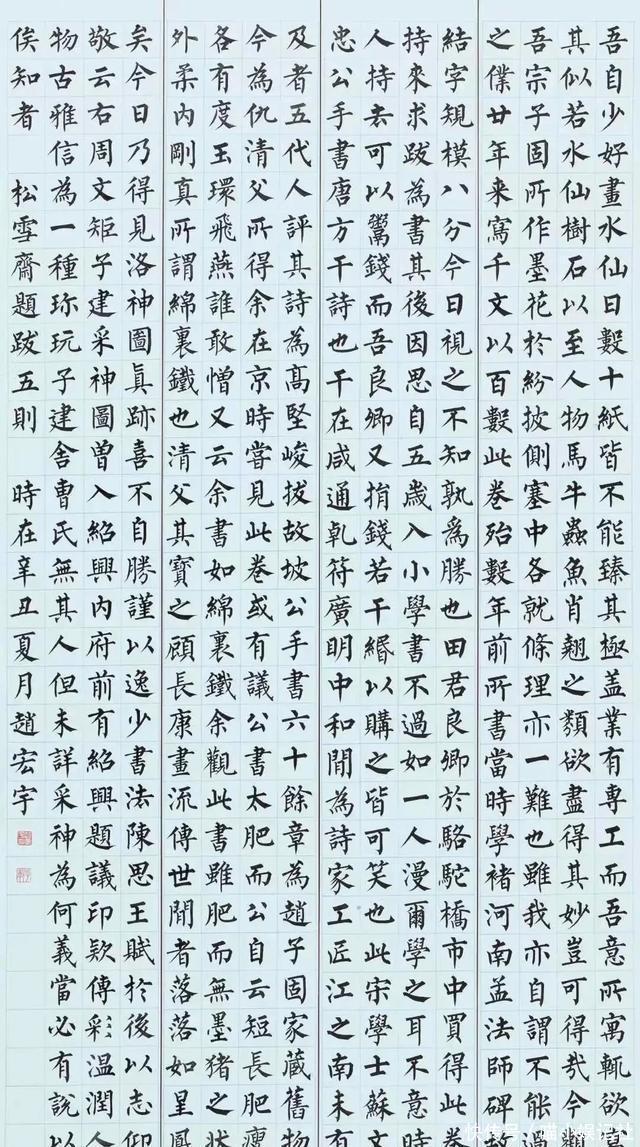 吾自少好畫水仙日數十紙皆不能臻其極盖業有專工而吾意所寓輒欲
其似若水仙樹石以至人物馬牛蟲魚肖翹之類欲盡得其妙豈可得哉今
吾宗子固所作墨花於紛披側塞中各就條理亦一難也雖我亦自謂不能
之僕廿年來寫千文以百數此卷殆數年前所書當時學褚河南孟法師碑故
結字規模八分今日視之不知孰為勝也田君良卿於駱駝橋市中買得此卷
持來求跋為書其後因思自五歲入小學書不過如一人漫爾學之耳不意
人持去可以鬻錢而吾良卿又捐錢若干緡以購之皆可笑也此宋學士蘇文
忠公手書唐方干詩也干在咸通乾符廣明中和間為詩家工匠江之南未有
及者五代人評其詩為高堅峻拔故坡公手書六十餘章為趙子固家藏舊物
今為仇清父所得余在京時嘗見此卷或有議公書太肥而公自云短長肥瘦
各有度玉環飛燕誰敢憎又云余書如綿裏鐵余觀此書雖肥而無墨猪之狀
外柔內剛真所謂綿裏鐵也清父其寶之顧長康畫流傳世間者落落如星鳳
矣今日乃得見洛神圖真跡喜不自勝謹以逸少書法陳思王賦於後以志仰
敬云右周文矩子建采神圖曾入紹興內府前有紹興題議印欵傳彩溫潤人
物古雅信為一種珎玩子建舍曹氏無其人但未詳采神為何義當必有說以
俟知者 松雪齋題跋五則 時在辛丑夏月趙宏宇
快传号/喵小娱评社